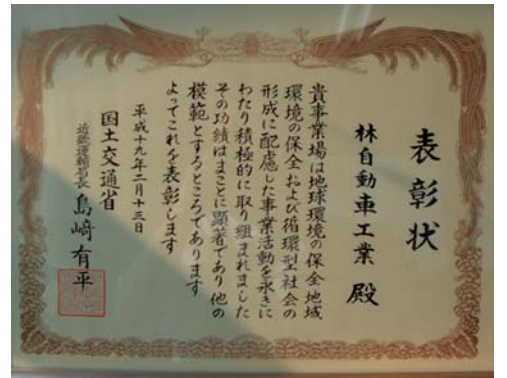 表彰状
林自動車工業 殿
貴事業場は地球環境の保全地域
環境の保全および循環型社会の
形成に配慮した事業活動を永きに
わたり積極的に取り組まれました
その功績はまことに顕著であり他の
模範とするところであります
よってこれを表彰します
平成十九年二月十三日
国土交通省
近畿運輸局長 島﨑有平